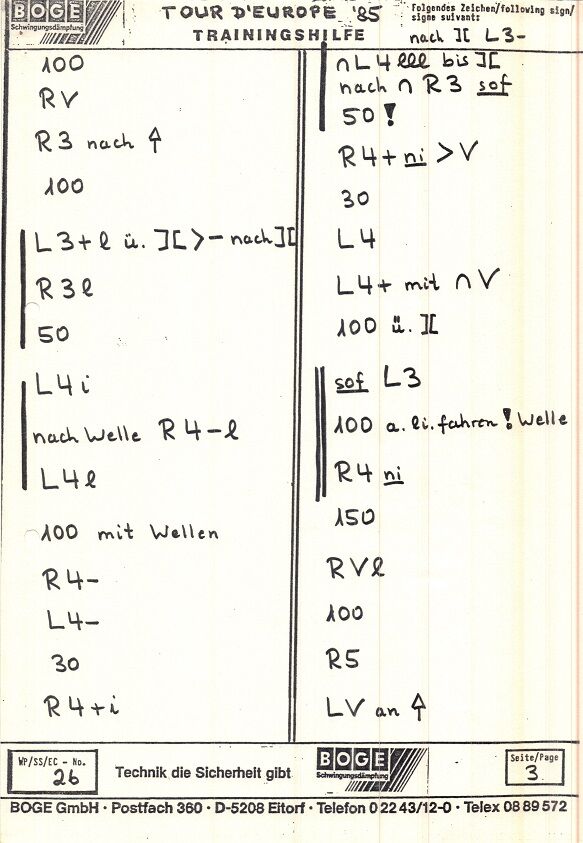 BOGE
Schwingungsdämpfung
TOUR D'EUROPE '85
TRAININGSHILFE
Folgendes Zeichen/following sign/
signe suivant:
nach ][ L3-
100
RV
R3 nach ↑
100
L3+l ü. ][ >- nach ][
R3l
50
L4i
nach Welle R4-l
L4l
100 mit Wellen
R4-
L4-
30
R4+i
∩L4lll bis ][
nach ∩ R3 sof
50!
R4+ni >V
30
L4
L4+ mit ∩V
100 ü. ][
sof L3
100 a.li.fahren! Welle
R4 ni
150
RVl
100
R5
LV an ↑
WP/SS/EC - No.
26
Technik die Sicherheit gibt
BOGE
Schwingungsdämpfung
Seite/Page
3
BOGE GmbH · Postfach 360 · D-5208 Eitorf · Telefon 0 22 43/12-0 · Telex 08 89 572